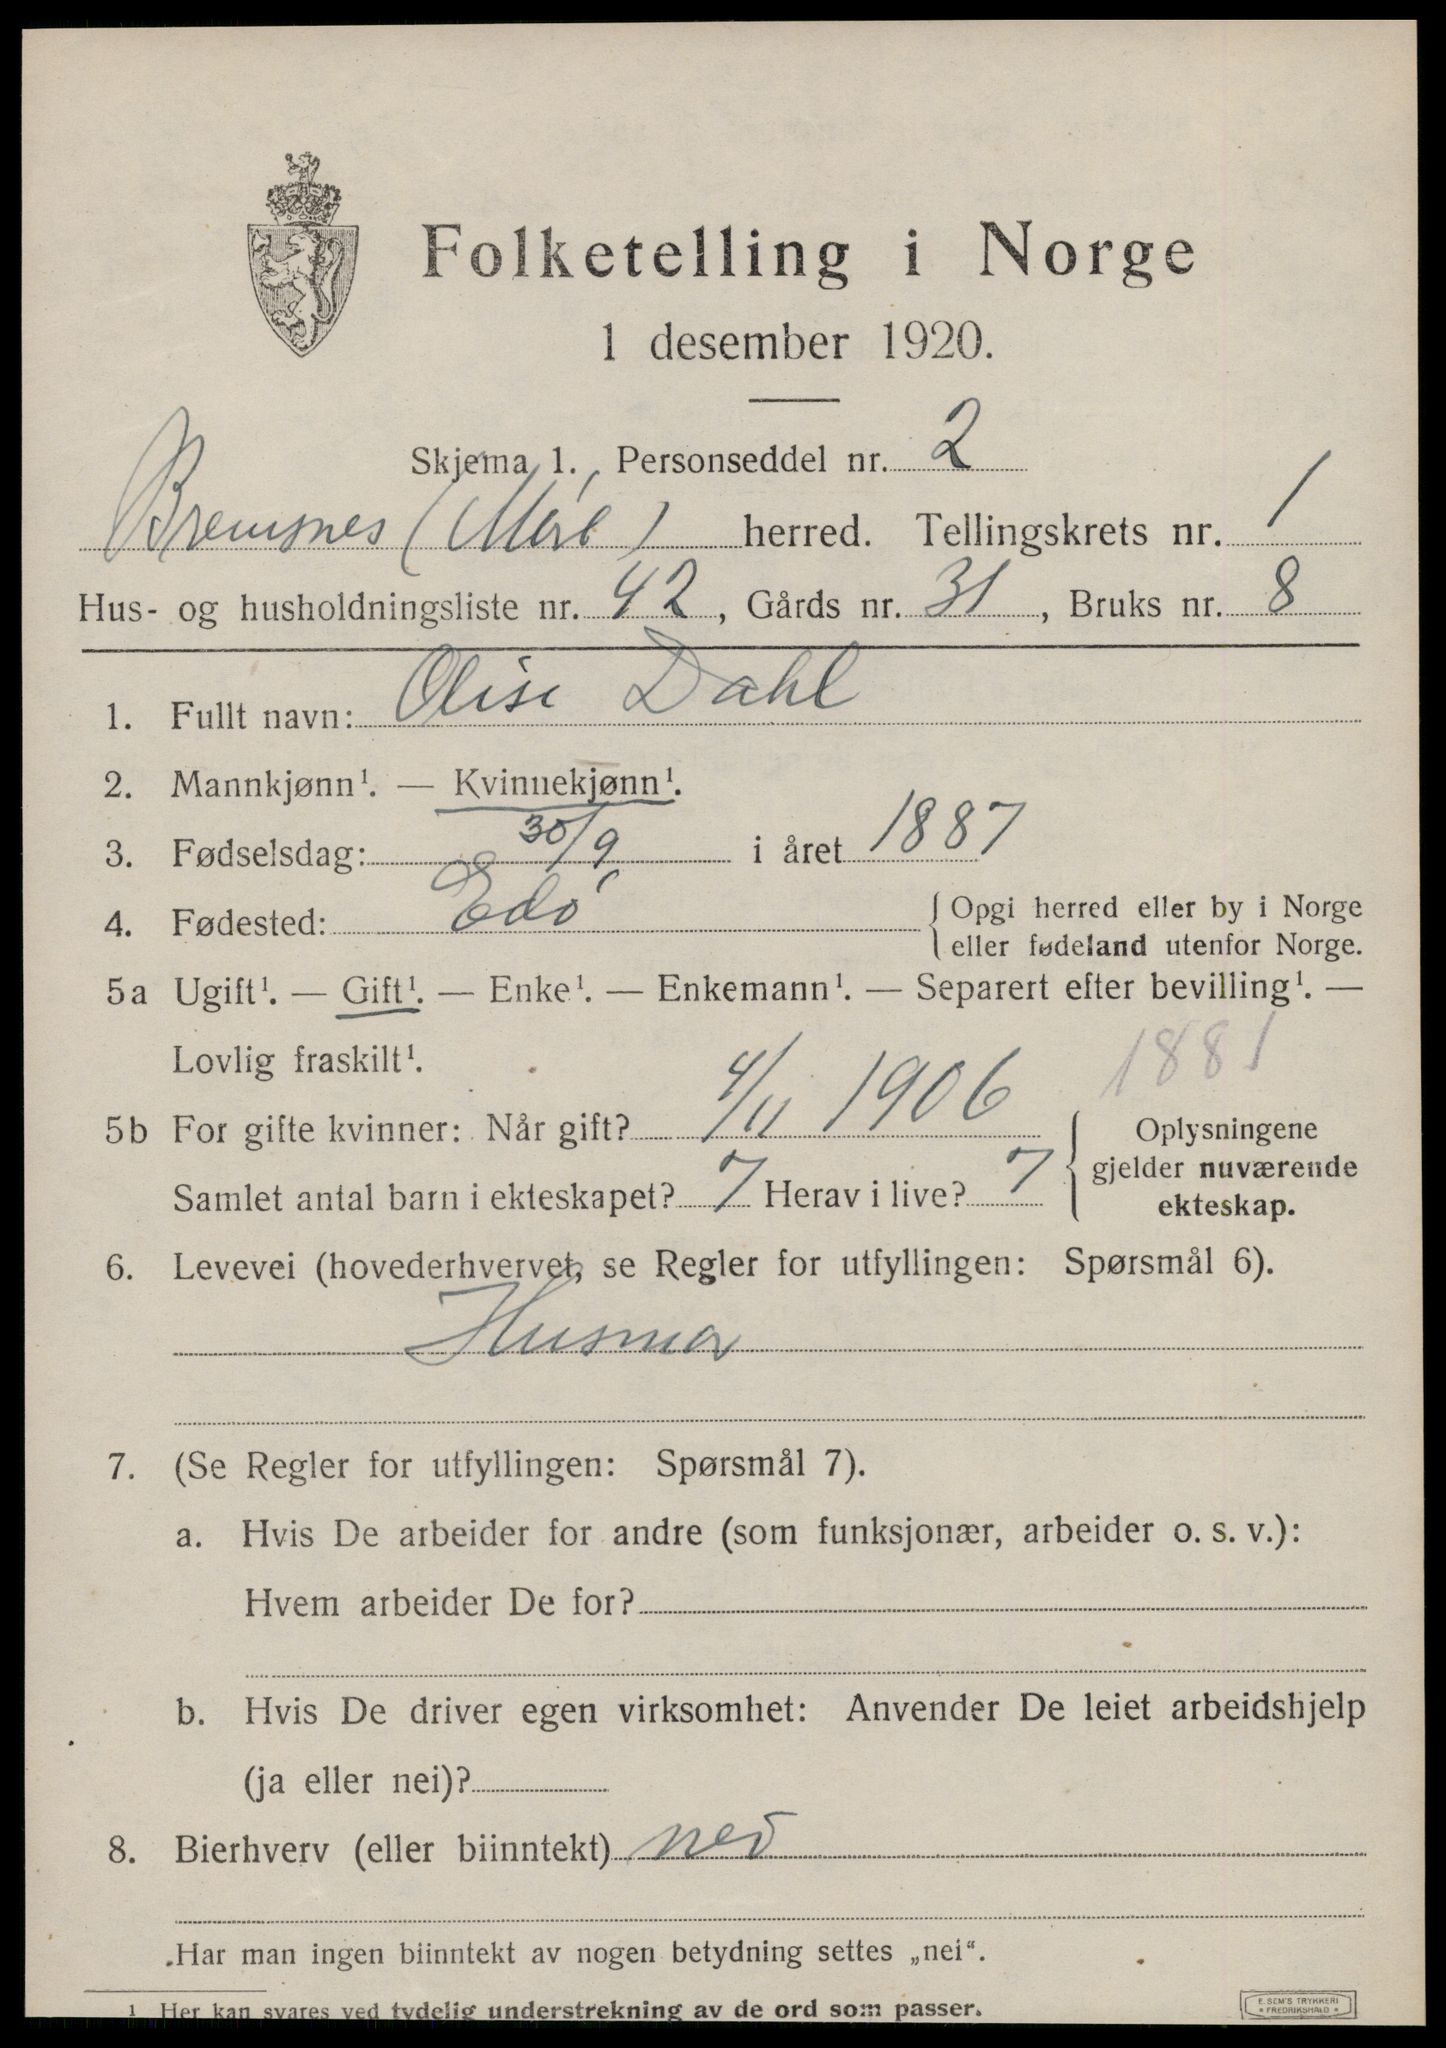 Folketelling i Norge
1 desember 1920.
Skjema 1. Personseddel nr. 2
Bremsnes (Møre) herred. Tellingskrets nr. 1
Hus- og husholdningsliste nr. 42, Gårds nr. 31, Bruks nr. 8
1. Fullt navn: Olise Dahl
2. Mannkjønn¹. — Kvinnekjønn¹.
3. Fødselsdag: 30/9 i året 1887
4. Fødested: Edø {Opgi herred eller by i Norge
eller fødeland utenfor Norge.
5a Ugift¹. — Gift¹. — Enke¹. — Enkemann¹. — Separert efter bevilling¹. —
Lovlig fraskilt¹. 1881
5b For gifte kvinner: Når gift? 4/11 1906
Samlet antal barn i ekteskapet? 7 Herav i live? 7
{Oplysningene
gjelder nuværende
ekteskap.
6. Levevei (hovederhvervet, se Regler for utfyllingen: Spørsmål 6).
Husmor
7. (Se Regler for utfyllingen: Spørsmål 7).
a. Hvis De arbeider for andre (som funksjonær, arbeider o. s. v.):
Hvem arbeider De for?
b. Hvis De driver egen virksomhet: Anvender De leiet arbeidshjelp
(ja eller nei)?
8. Bierhverv (eller biinntekt) nei
Har man ingen biinntekt av nogen betydning settes „nei“.
¹ Her kan svares ved tydelig understrekning av de ord som passer.
E. SEM'S TRYKKERI
* FREDRIKSHALD *